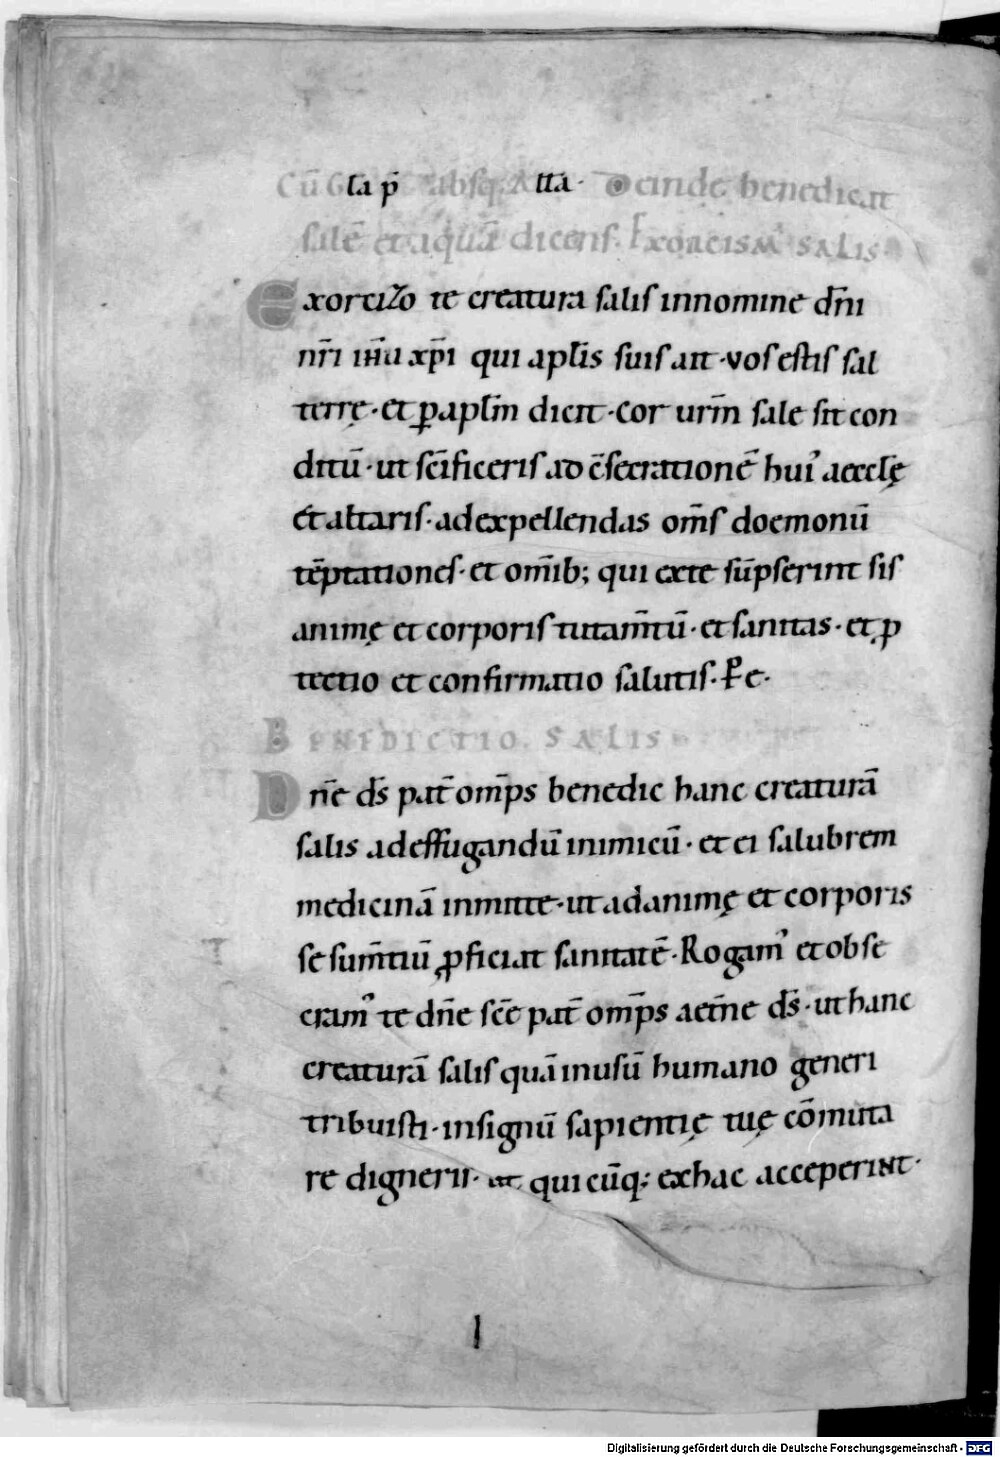 Cū G la p̄ absq; A tta· Deinde benedicat
salē et aquā dicens. Exorcism̄ salis·
Exorcizo te creatura salis innomine dn̄i
nr̄i ihū xp̄i qui apłis suis ait · vos estis sal
terrę · et ꝑ aplm̄ dicit · Cor urm̄ sale sit con
ditū · ut sc̄ificeris ad c̄secrationē hui᾽ aecclę̄
et altaris · ad expellendas om̄s doemonū
tēptationes · et om̄ib; qui exte sūpserint sis
animę et corporis tutam̄tū · et sanitas · et ꝓ
tectio et confirmatio salutis · P̄e·
Benedictio salis
Dn̄e ds̄ pat̄ om̄ps benedic hanc creaturā
salis adeffugandū inimicū · et ei salubrem
medicinā inmitte · ut adanimę et corporis
se sum̄tiū ꝓficiat sanitatē · Rogam᾽ et obse
cram᾽ te dn̄e sc̄e pat̄ om̄ps aet̄ne ds̄ · ut hanc
creaturā salis quā inusū humano generi
tribuisti · insignū sapientię tuę cōmuta
re digneris · ut quicūq; exhac acceperint ·
Digitalisierung gefördert durch die Deutsche Forschungsgemeinschaft - DFG